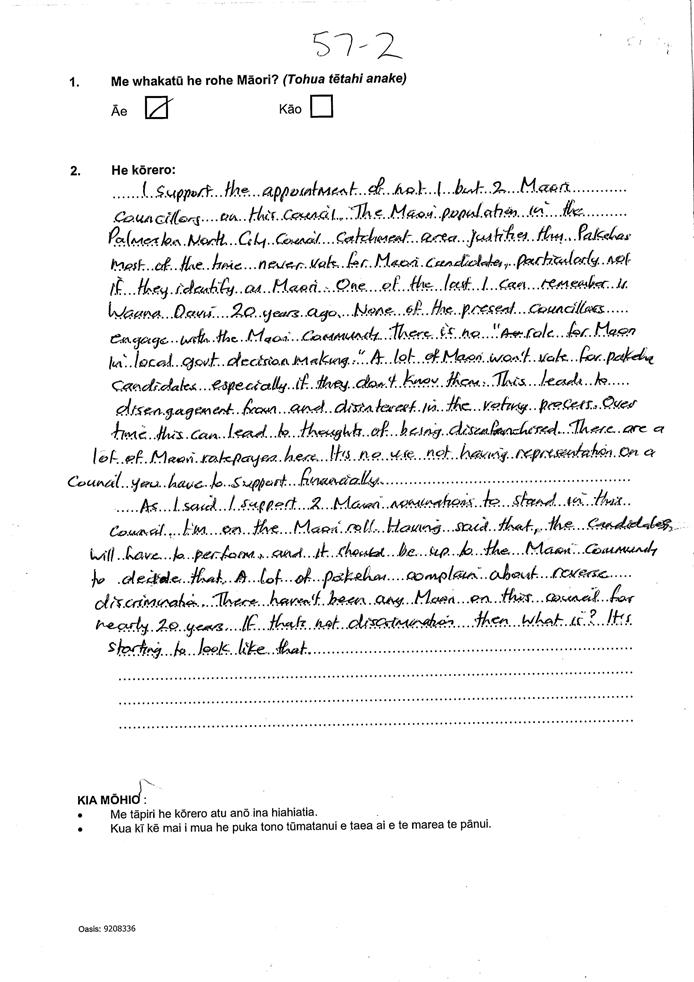 57-2
1. Me whakatū he rohe Māori? (Tohua tētahi anake)
Āe Kāo
2. He kōrero:
I support the appointment of not 1 but 2 Maori
Councillors on this Council. The Maori population in the
Palmerston North City Council Catchment area justifies this. Pakehas
most of the time never vote for Maori candidates, particularly not
if they identify as Maori. One of the last I can remember is
Davis 20 years ago. None of the present Councillors
engage with the Maori Community. There is no "role for Maori
in local govt decision making." A lot of Maori won't vote for pakeha
candidates especially if they don't know them. This leads to
disengagement from and disinterest in the voting process. Over
time this can lead to thoughts of being disenfranchised. There are a
lot of Maori ratepayers here. It's no use not having representation on a
Council you have to support financially.
As I said I support 2 Maori nominations to stand in this
Council. I'm on the Maori roll. Having said that, the candidates
will have to perform, and it should be up to the Maori Community
to decide that. A lot of pakehas complain about reverse
discrimination. There haven't been any Maori on this council for
nearly 20 years. If that's not discrimination then what is? It's
starting to look like that.
KIA MŌHIO :
• Me tāpiri he kōrero atu anō ina hiahiatia.
• Kua kī kē mai i mua he puka tono tūmatanui e taea ai e te marea te pānui.
Oasis: 9208336